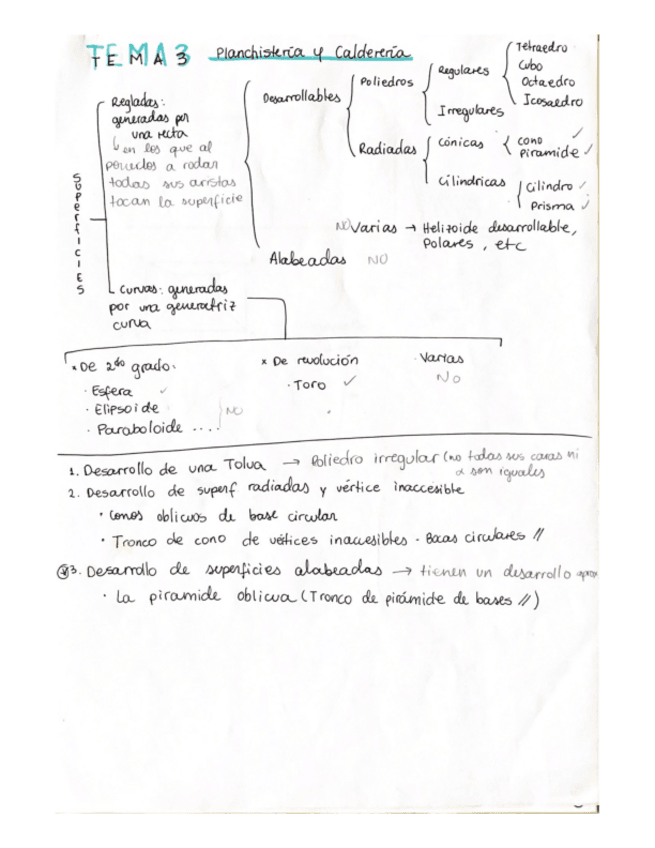 TEMA 3 Planchistería y Calderería
SUPERFICIES
Regladas:
generadas por
una recta
en los que al
ponerlos a rodar
todas sus aristas
tocan la superficie
Desarrollables
Poliedros
Regulares
Tetraedro
Cubo
Octaedro
Icosaedro
Irregulares
Radiadas
Cónicas
cono ✓
piramide ✓
Cilíndricas
Cilindro ✓
Prisma ✓
NO Varias → Helizoide desarrollable,
Polares, etc
Alabeadas NO
Curvas: generadas
por una generatriz
curva
* De 2do grado.
· Esfera ✓
· Elipsoide
· Paraboloide ....
NO
* De revolución
· Toro ✓
· Varias
No
1. Desarrollo de una Tolua → Poliedro irregular (no todas sus caras ni
α son iguales
2. Desarrollo de superf radiadas y vértice inaccesible
· Conos oblicuos de base circular
· Tronco de cono de vértices inaccesibles · Bocas circulares //
3. Desarrollo de superficies alabeadas → tienen un desarrollo aprox
· La piramide oblicua (Tronco de pirámide de bases //)